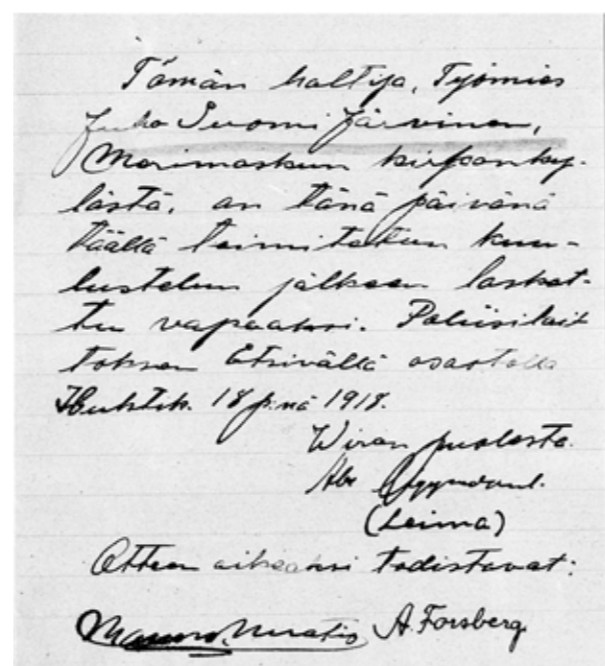 Tämän haltija, Työmies
Juho Suomi Järvinen,
Merimaskun kirkonky-
lästä, on tänä päivänä
täältä toimitetun kuu-
lustelun jälkeen lasket-
tu vapaaksi. Poliisilait
toksen Etsivällä osastolla
Huhtik. 18 p:nä 1918.
Wiran puolesta.
(Leima)
Otteen oikeaksi todistavat:
A. Forsberg